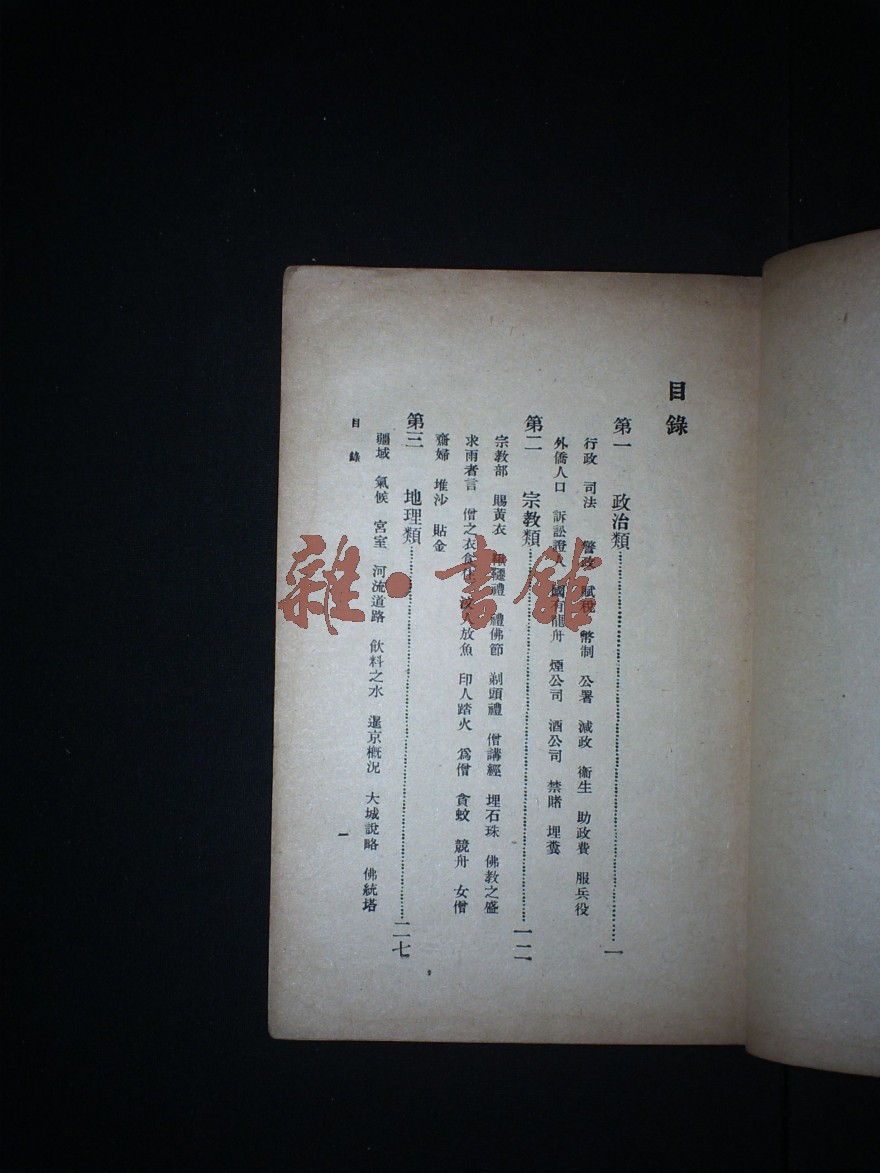 目錄
第一 政治類……………一
行政 司法 警政 賦稅 幣制 公署 減政 衞生 助政費 服兵役
外僑人口 訴訟證人 國有龍舟 煙公司 酒公司 禁賭 埋糞
第二 宗教類……………一二
宗教部 賜黃衣 禮 禮佛節 剃頭禮 僧講經 埋石珠 佛教之盛
求雨者言 僧之衣食住 放魚 印人踏火 爲僧 貪蚊 競舟 女僧
齋婦 堆沙 貼金
第三 地理類……………二七
疆域 氣候 宮室 河流道路 飲料之水 暹京概況 大城說略 佛統塔
目錄
一
雜·書館